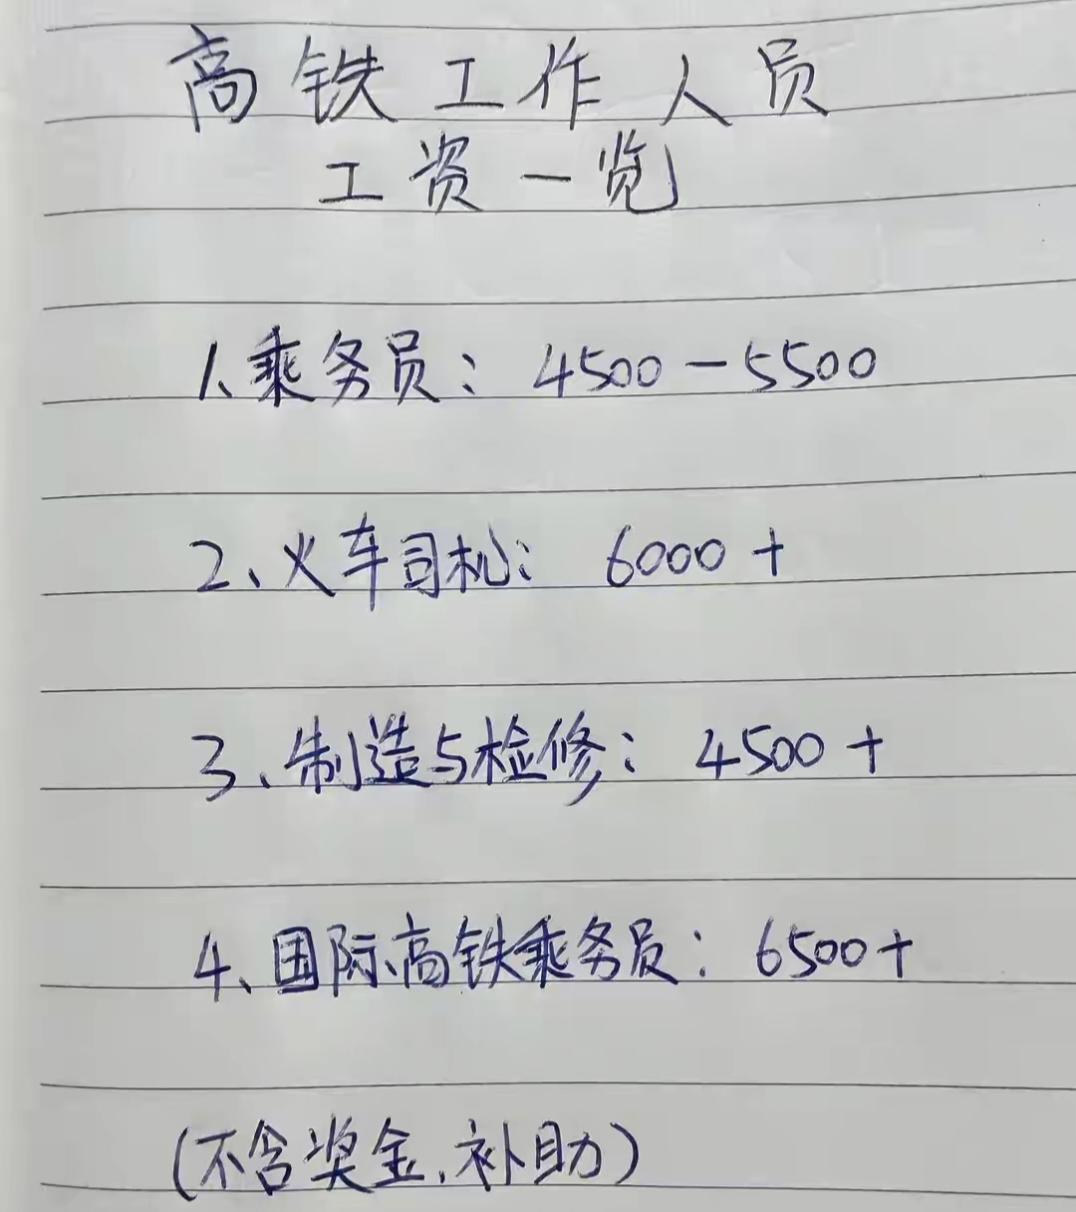 高铁工作人员
工资一览
1、乘务员：4500-5500
2、火车司机：6000+
3、制造与检修：4500+
4、国际高铁乘务员：6500+
(不含奖金、补助)